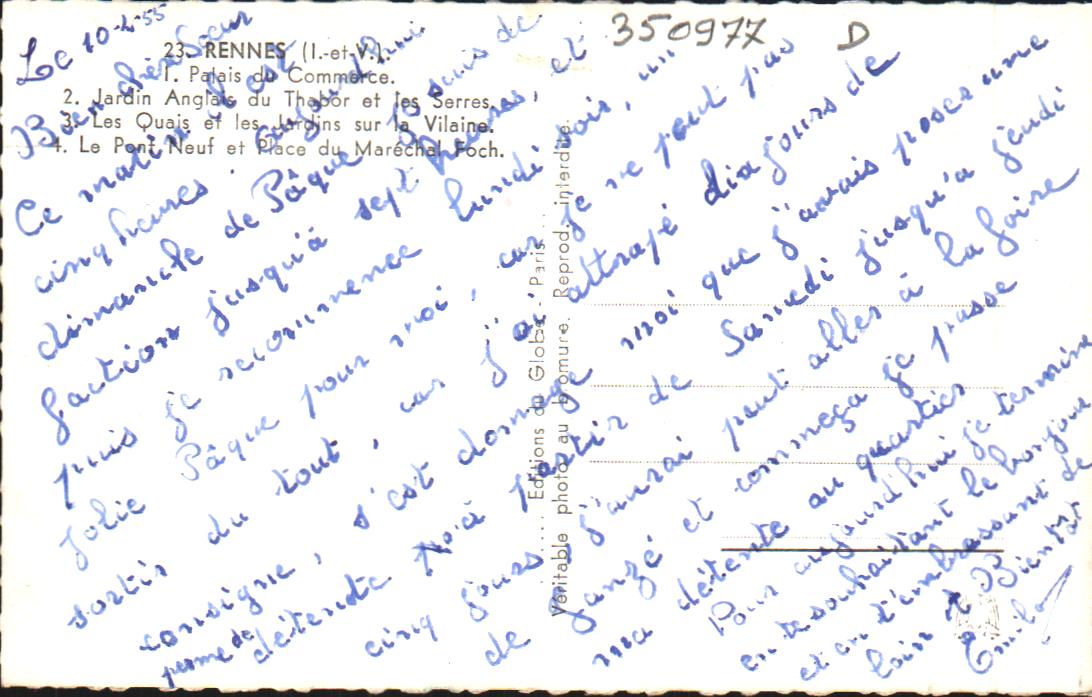 350977 D
23. RENNES (I.-et-V.).
1. Palais du Commerce.
2. Jardin Anglais du Thabor et les Serres.
3. Les Quais et les Jardins sur la Vilaine.
4. Le Pont Neuf et Place du Maréchal Foch.
Editions du Globe - Paris
Véritable photo au bromure. Reprod. interdite.
Le 10-4-55
Bien chère Sœur
Ce matin il est
cinq heures. Aujourd'hui
dimanche de Pâque je suis de
faction jusqu'à sept heures, et
puis je recommence lundi soir, un
jolie Pâque pour moi, car je ne peut pas
sortir du tout, car j'ai attrapé dix jours de
consigne, s'est domage moi que j'avais poser une
perme de détente à partir de Samedi jusqu'a jeudi
cinq jours j'aurai peut aller à la foire
de Janzé et commeça je passe
ma détente au quartier
Pour aujourd'hui je termine
en te souhaitant le bonjour
et en t'embrassant de
loin A Bientôt
Emile